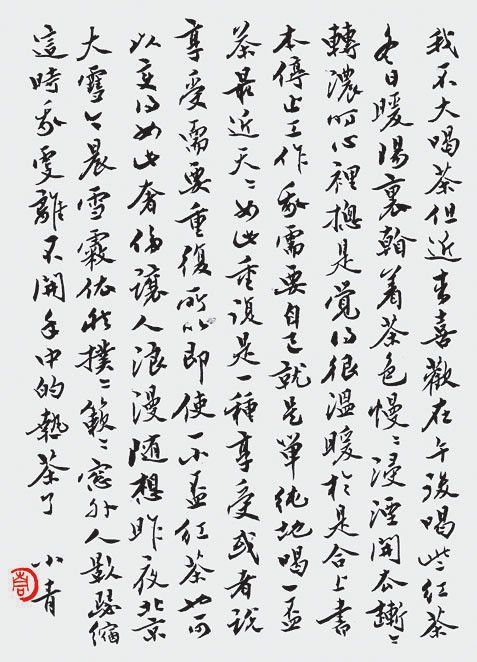 我不大喝茶但近來喜歡在午後喝些紅茶
冬日暖陽裏着茶色慢〻浸湮開去漸〻
轉濃心裡總是覺得很溫暖於是合上書
本停止工作我需要自己就是單純地喝一盃
茶最近天〻如此重復是一種享受或者説
享受需要重復所以即使一小盃紅茶也可
以變得如此奢侈讓人浪漫隨想昨夜北京
大雪今晨雪霰依然撲〻簌〻窓外人影瑟縮
這時我更離不開手中的熱茶了
小青